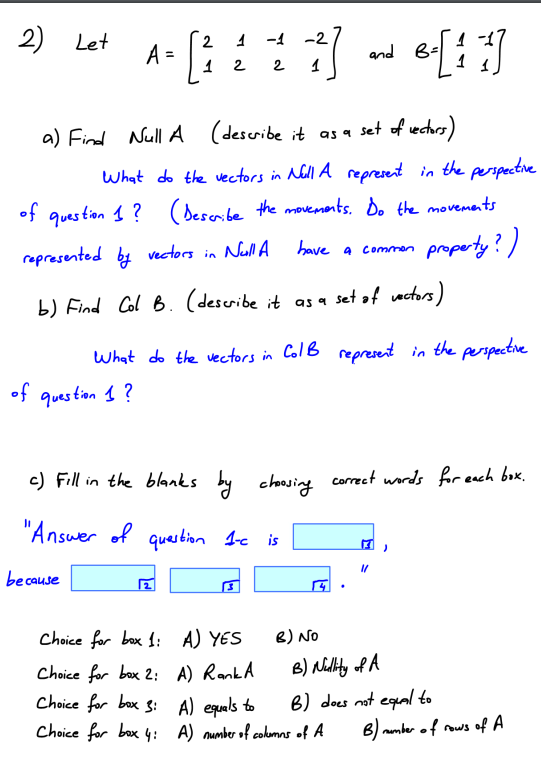 2) Let A = [2 1 -1 -2 and B=[1 -1
1 2 2 1] 1 1]
a) Find Null A (describe it as a set of vectors)
What do the vectors in Null A represent in the perspective
of question 1? (Describe the movements. Do the movements
represented by vectors in Null A have a common property?)
b) Find Col B. (describe it as a set of vectors)
What do the vectors in Col B represent in the perspective
of question 1?
c) Fill in the blanks by choosing correct words for each box.
"Answer of question 1-c is 1 ,
because 2 3 4 ."
Choice for box 1: A) YES B) NO
Choice for box 2: A) Rank A B) Nullity of A
Choice for box 3: A) equals to B) does not equal to
Choice for box 4: A) number of columns of A B) number of rows of A